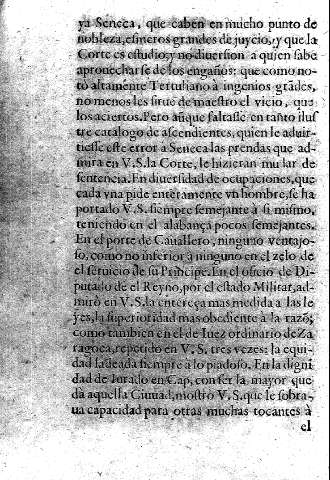 ya Seneca, que caben en mucho punto de
nobleza, esmeros grandes de juycio, y que la
Corte es estudio, y no diuersion a quien sabe
aprouecharse de los engaños: que como no-
tò altamente Tertuliano à ingenios grādes,
no menos les sirue de maestro el vicio, que
los aciertos. Pero aũque faltasse en tanto ilus
tre catalogo de ascendientes, quien le aduir-
tiesse este error à Seneca las prendas que ad-
mira en V.S. la Corte, le hizieran mudar de
sentencia. En diuersidad de ocupaciones, que
cada vna pide enteramente vn hombre, se ha
portado V.S. siempre semejante à si mismo,
teniendo en el alabança pocos semejantes.
En el porte de Cauallero, ninguno ventajo-
so, como no inferior à ninguno en el zelo de
el seruicio de su Principe. En el oficio de Di-
putado de el Reyno, por el estado Militar, ad-
mirò en V.S. la entereça mas medida a las le
yes, la superioridad mas obediente à la razõ;
como tambien en el de Iuez ordinario de Za-
ragoça, repetido en V.S. tres vezes: la equi-
dad ladeada siempre à lo piadoso. En la digni
dad de Iurado en Cap, con ser la mayor que
dà aquella Ciudad, mostrò V.S. que le sobra-
ua capacidad para otras muchas tocantes à
el